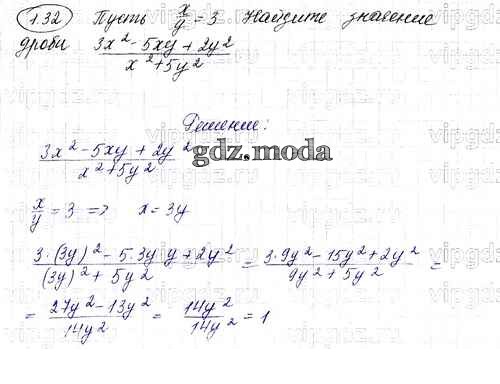 1.32 Пусть x/y = 3 Найдите значение
дроби (3x² - 5xy + 2y²)/(x² + 5y²)
Решение:
(3x² - 5xy + 2y²)/(x² + 5y²)
gdz.moda
x/y = 3 => x = 3y
(3·(3y)² - 5·3y·y + 2y²)/((3y)² + 5y²) = (3·9y² - 15y² + 2y²)/(9y² + 5y²) =
= (27y² - 13y²)/(14y²) = (14y²)/(14y²) = 1